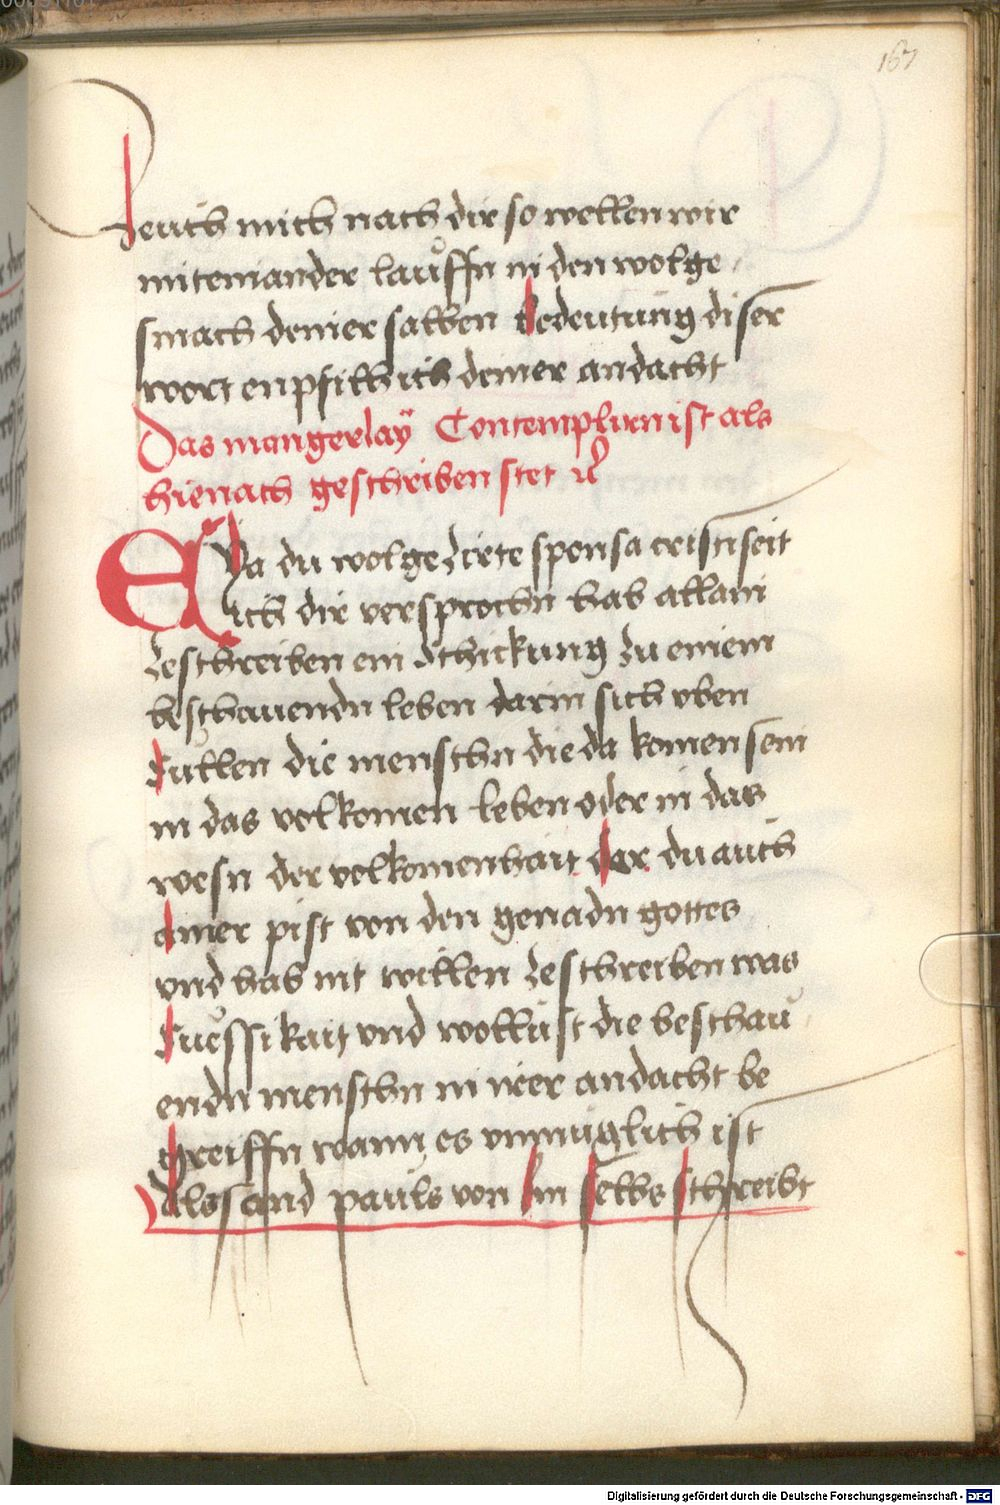 167
Zeuch mich nach dir so wellen wir
miteinander lauffn in den wolge
smach deiner salben Bedeutung diser
wort enpfilh ich deiner andacht
Das mangerlaÿ Contemplirn ist als
hienach geschriben stet
EYa du wolgezirte sponsa cristi seit
ich dir versprochn hab allain
zeschreiben ein schickung zu einem
beschauendn leben darin sich vben
Sullen die menschn die da komen sein
in das volkomen leben oder in das
wesn der volkomenhait der du auch
ainer pist von den genadn gottes
vnd hab nit willen zeschreiben was
Suessikait vnd wollust die beschau
endn menschn in irer andacht be
greiffn wann es vnmuglich ist
Als sand pauls von Im selbs schreibt
Digitalisierung gefördert durch die Deutsche Forschungsgemeinschaft - DFG